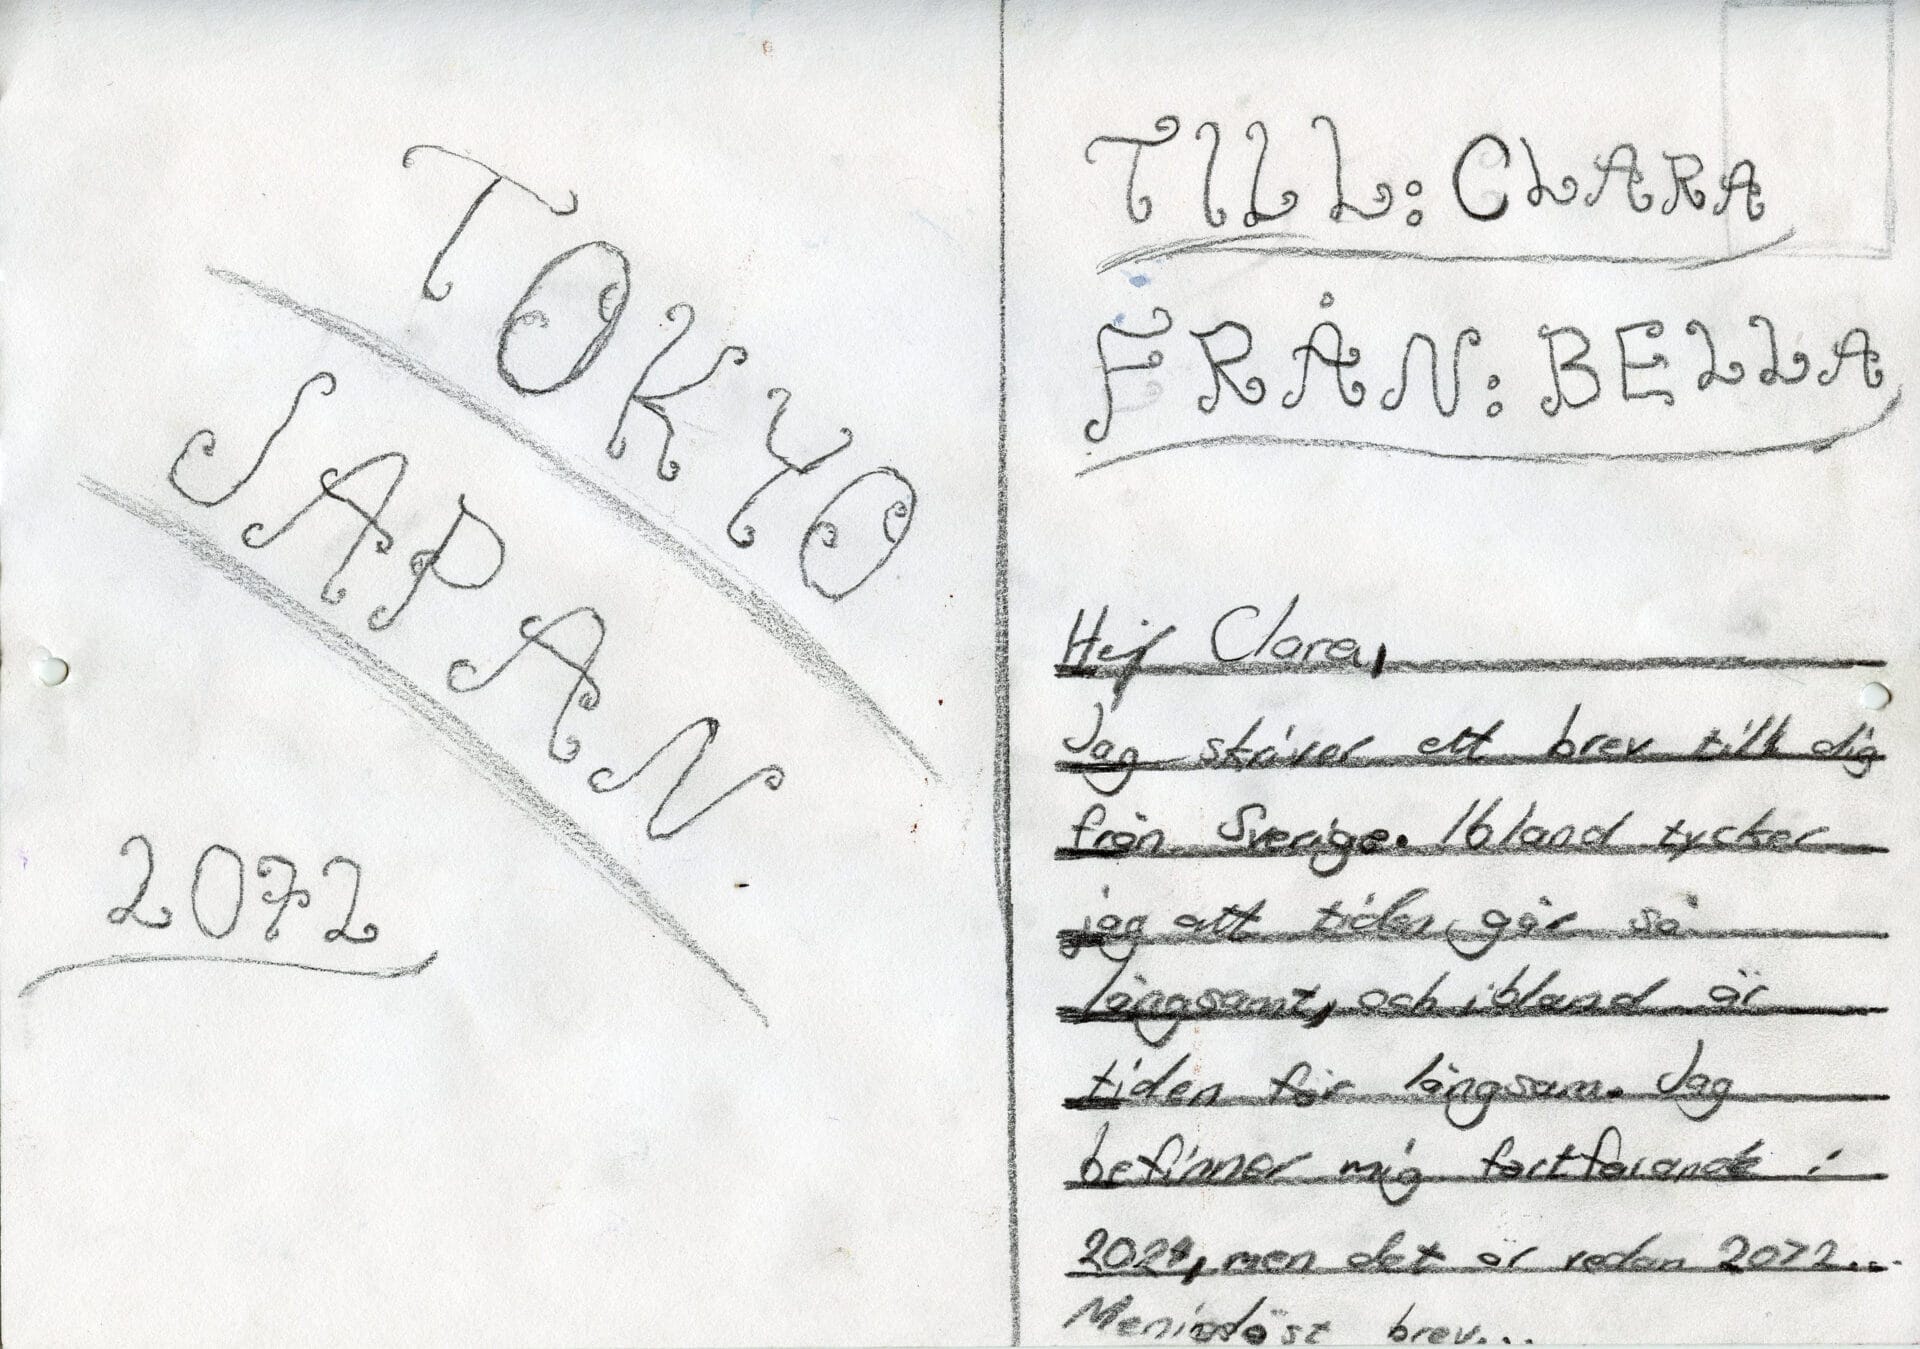 TOKYO
JAPAN
2072
TILL: CLARA
FRÅN: BELLA
Hej Clara,
Jag skriver ett brev till dig
från Sverige. Ibland tycker
jag att tiden går så
långsamt, och ibland är
tiden för långsam. Jag
befinner mig fortfarande i
2024, men det är redan 2072...
Meninglöst brev...